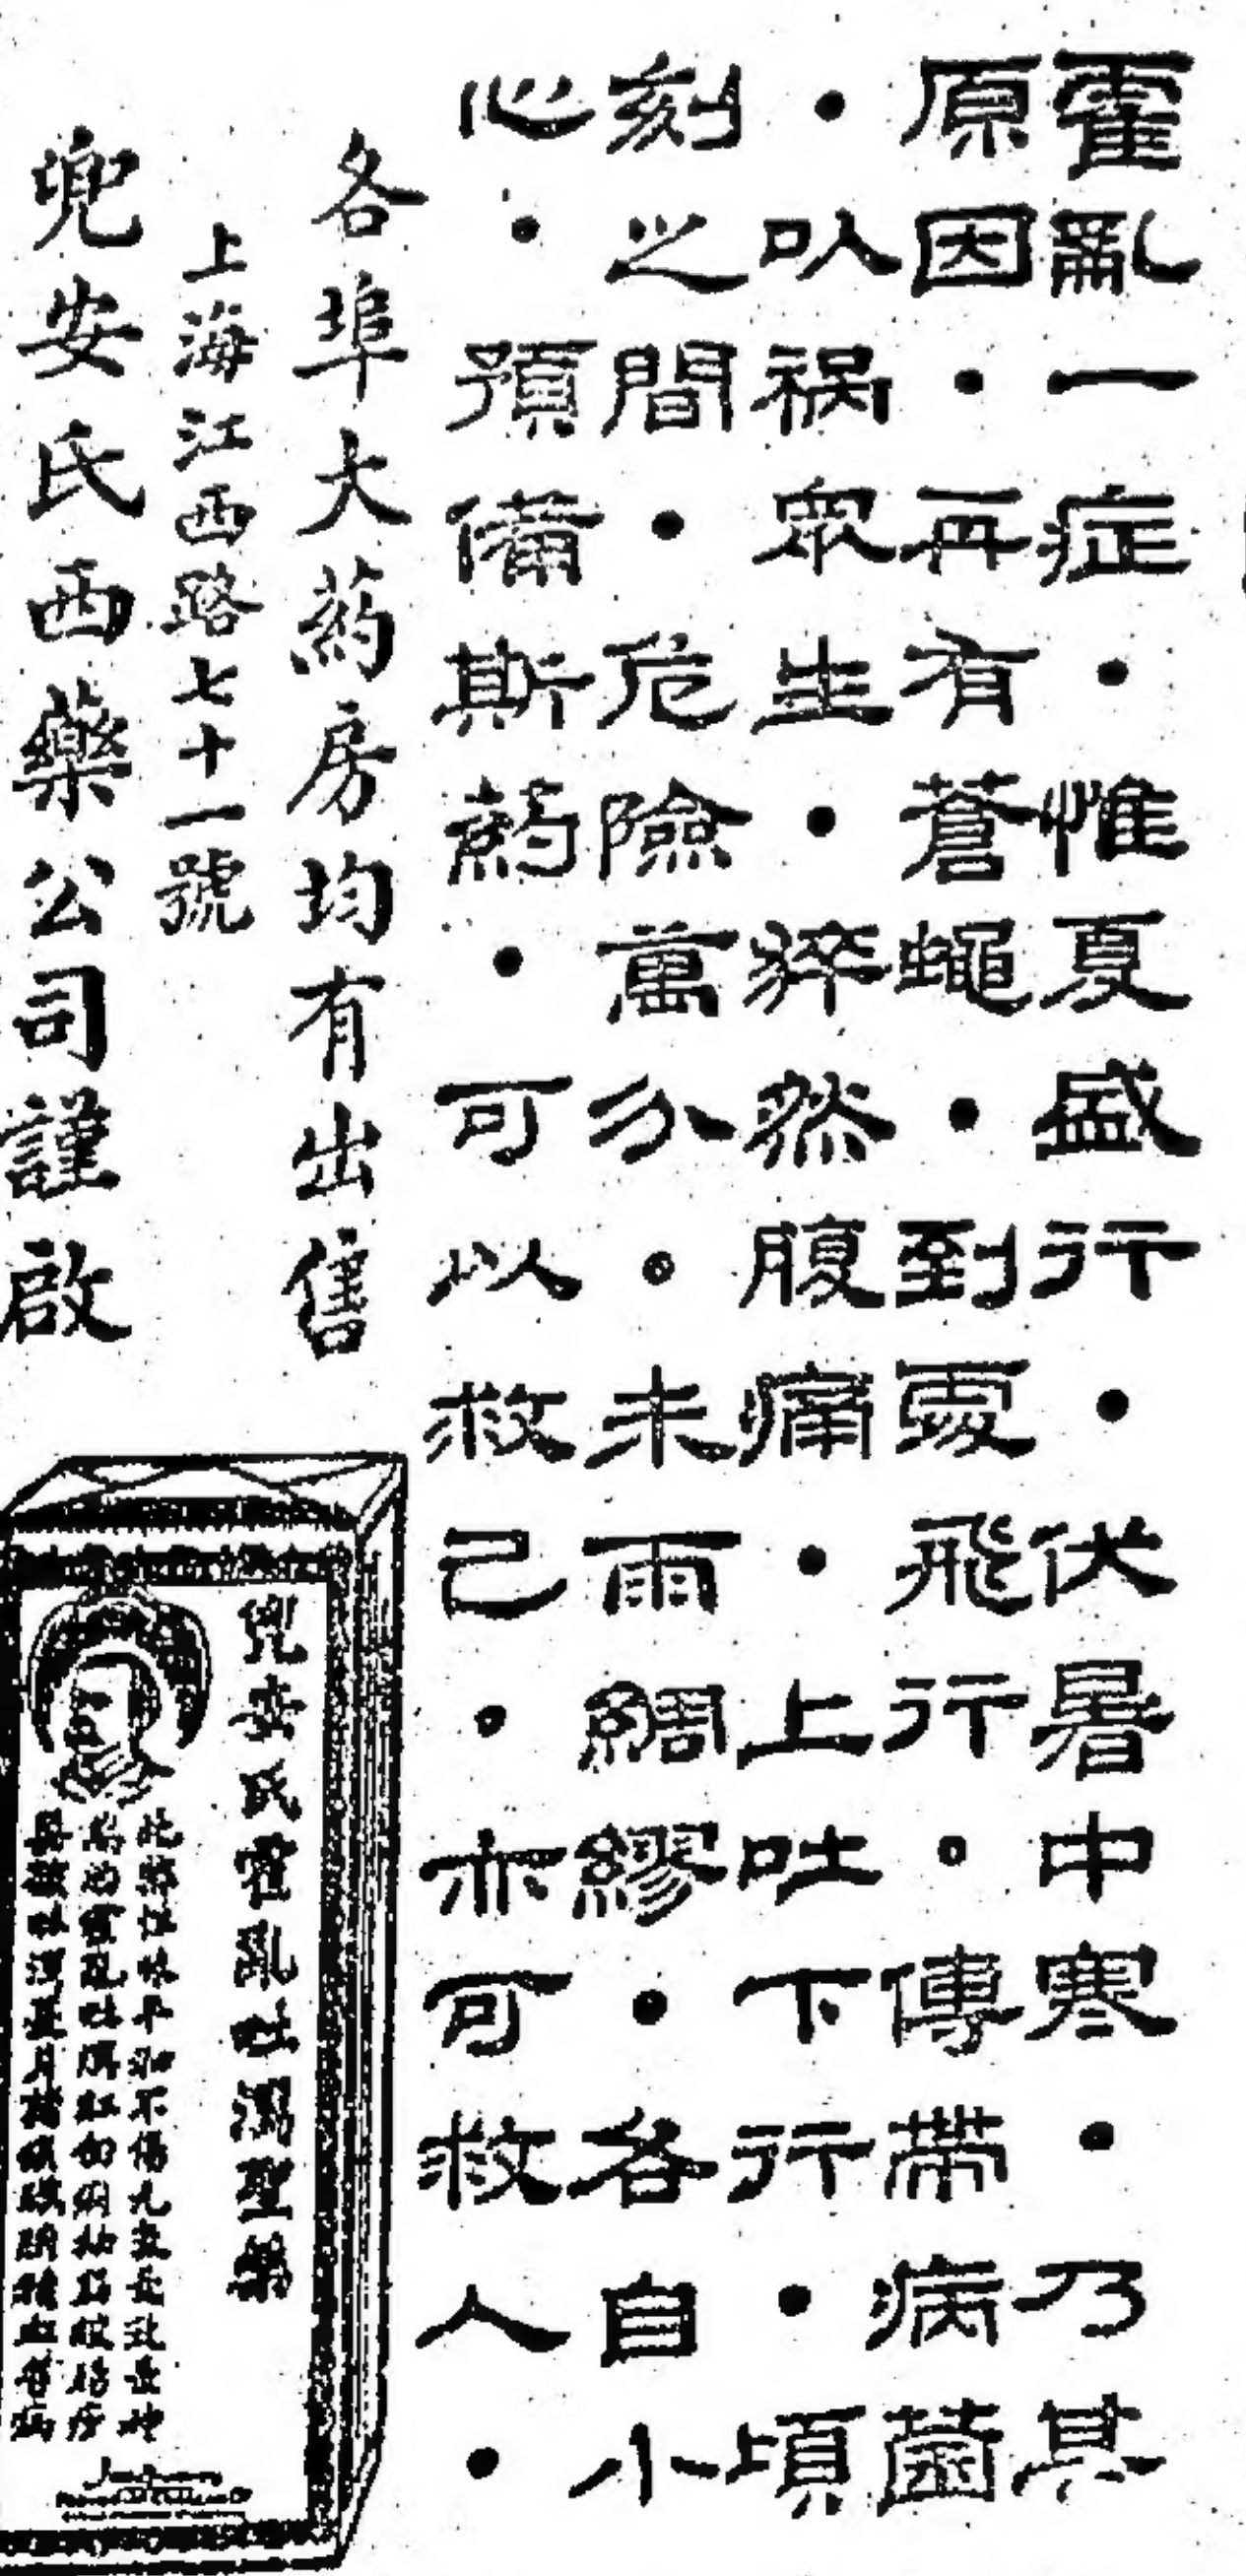 霍亂一症・惟夏盛行・伏暑中寒・乃其
原因・再有蒼蠅・到處飛行。傳帶病菌
・以禍眾生・猝然腹痛・上吐下行・頃
刻之間・危險萬分。未雨綢繆・各自小
心・預備斯葯・可以救己・亦可救人・
各埠大葯房均有出售
上海江西路七十一號
兜安氏西藥公司謹啟
兜安氏霍亂吐瀉聖藥